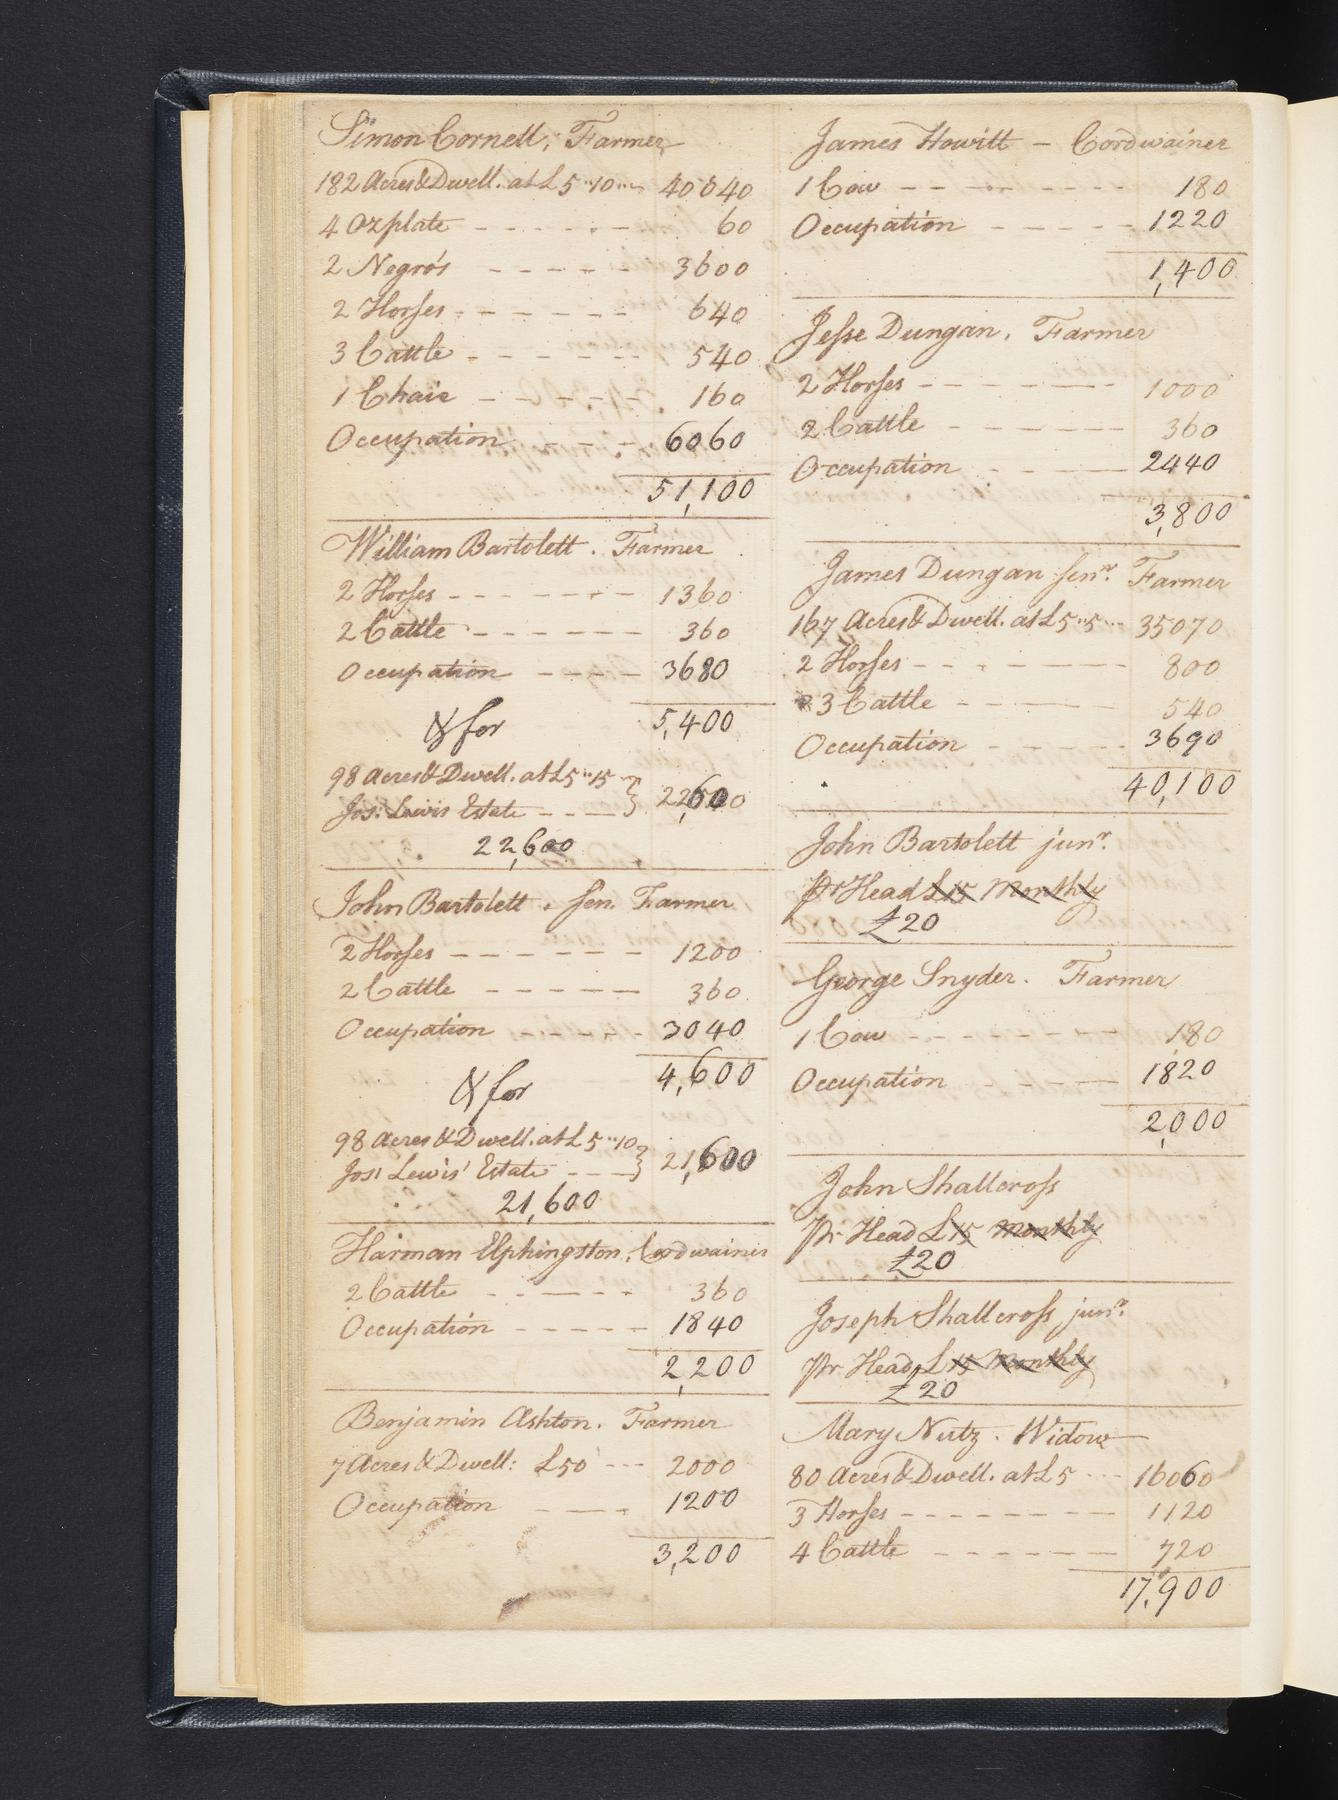 Simon Cornell, Farmer
182 Acres & Dwell. at £5"10 40040
4 Oz plate 60
2 Negro's 3600
2 Horses 640
3 Cattle 540
1 Chair 160
Occupation 6060
51,100
William Bartolett. Farmer
2 Horses 1360
2 Cattle 360
Occupation 3680
5,400
& for
98 Acres & Dwell. at £5"15
Jos: Lewis Estate } 22,600
22,600
John Bartolett. Sen. Farmer
2 Horses 1200
2 Cattle 360
Occupation 3040
4,600
& for
98 Acres & Dwell. at £5"10
Jos: Lewis' Estate } 21,600
21,600
Harman Elphingston, Cordwainer
2 Cattle 360
Occupation 1840
2,200
Benjamin Ashton. Farmer
7 Acres & Dwell: £50 2000
Occupation 1200
3,200
James Howitt - Cordwainer
1 Cow 180
Occupation 1220
1,400
Jesse Dungan. Farmer
2 Horses 1000
2 Cattle 360
Occupation 2440
3,800
James Dungan Senr. Farmer
167 Acres & Dwell. at £5"5 35070
2 Horses 800
3 Cattle 540
Occupation 3690
40,100
John Bartolett junr.
Pr Head £15 Monthly
£20
George Snyder. Farmer
1 Cow 180
Occupation 1820
2,000
John Shallcross
Pr Head £15 Monthly
£20
Joseph Shallcross junr.
Pr Head £15 Monthly
£20
Mary Nutz. Widow
80 Acres & Dwell. at £5 16060
3 Horses 1120
4 Cattle 720
17,900